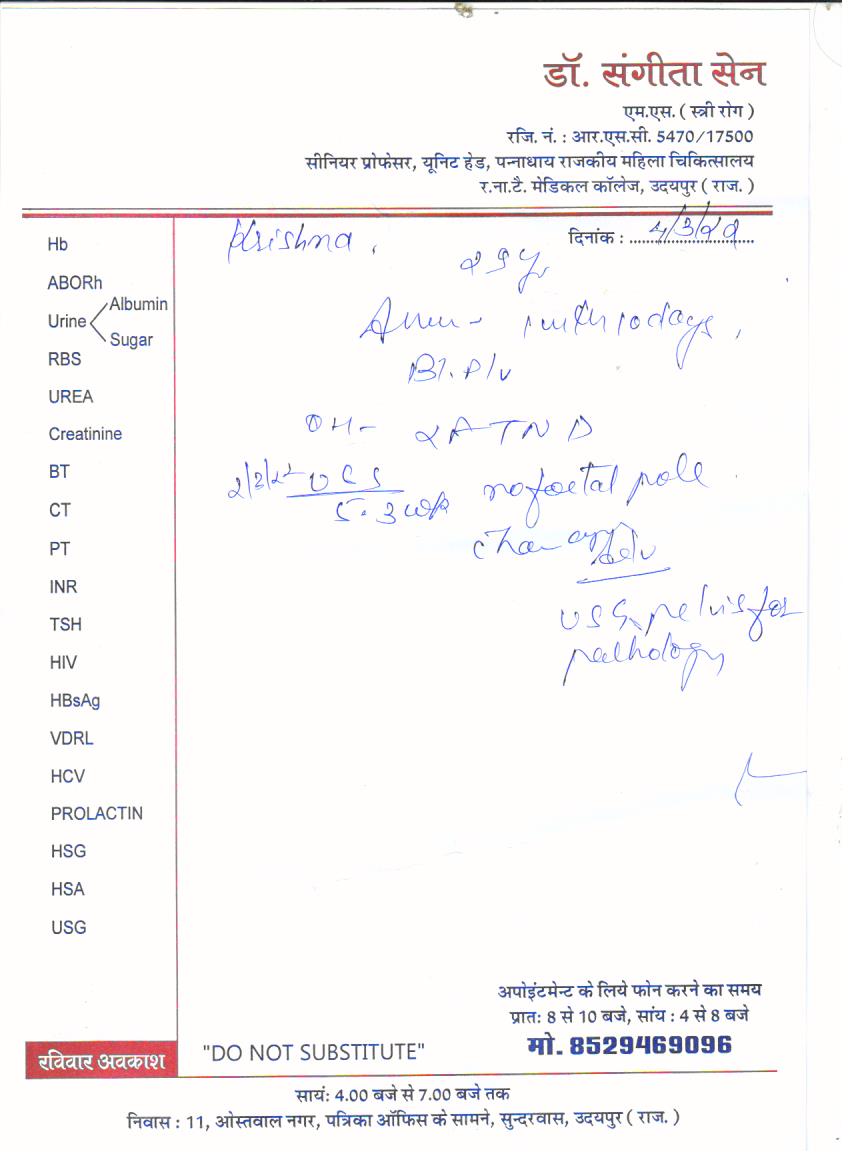 डॉ. संगीता सेन
एम.एस. ( स्त्री रोग )
रजि. नं. : आर.एस.सी. 5470/17500
सीनियर प्रोफेसर, यूनिट हेड, पन्नाधाय राजकीय महिला चिकित्सालय
र.ना.टै. मेडिकल कॉलेज, उदयपुर ( राज. )
दिनांक : 4/3/22
Krishna,
25 y
10 days,
Bl. P/v
OH- 2ATND
2/3/22 USG no foetal pole
5.3 wk
USG pelvis for
pathology
Hb
ABORh
Urine Albumin
Sugar
RBS
UREA
Creatinine
BT
CT
PT
INR
TSH
HIV
HBsAg
VDRL
HCV
PROLACTIN
HSG
HSA
USG
अपोइंटमेन्ट के लिये फोन करने का समय
प्रातः 8 से 10 बजे, सांय : 4 से 8 बजे
मो. 8529469096
रविवार अवकाश
"DO NOT SUBSTITUTE"
सायंः 4.00 बजे से 7.00 बजे तक
निवास : 11, ओस्तवाल नगर, पत्रिका ऑफिस के सामने, सुन्दरवास, उदयपुर ( राज. )